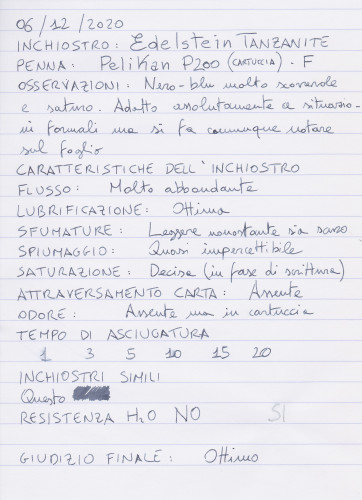 06/12/2020
INCHIOSTRO: Edelstein TANZANITE
PENNA: Pelikan P200 (CARTUCCIA) - F
OSSERVAZIONI: Nero-blu molto scorrevole
e satino. Adatto assolutamente a situazio-
ni formali ma si fa comunque notare
sul foglio
CARATTERISTICHE DELL'INCHIOSTRO
FLUSSO: Molto abbondante
LUBRIFICAZIONE: Ottima
SFUMATURE: Leggere nonostante sia
SPIUMAGGIO: Quasi impercettibile
SATURAZIONE: Decisa (in fase di scrittura)
ATTRAVERSAMENTO CARTA: Assente
ODORE: Assente ma in cartuccia
TEMPO DI ASCIUGATURA
1 3 5 10 15 20
INCHIOSTRI SIMILI
Questo
RESISTENZA H2O NO SI
GIUDIZIO FINALE: Ottimo